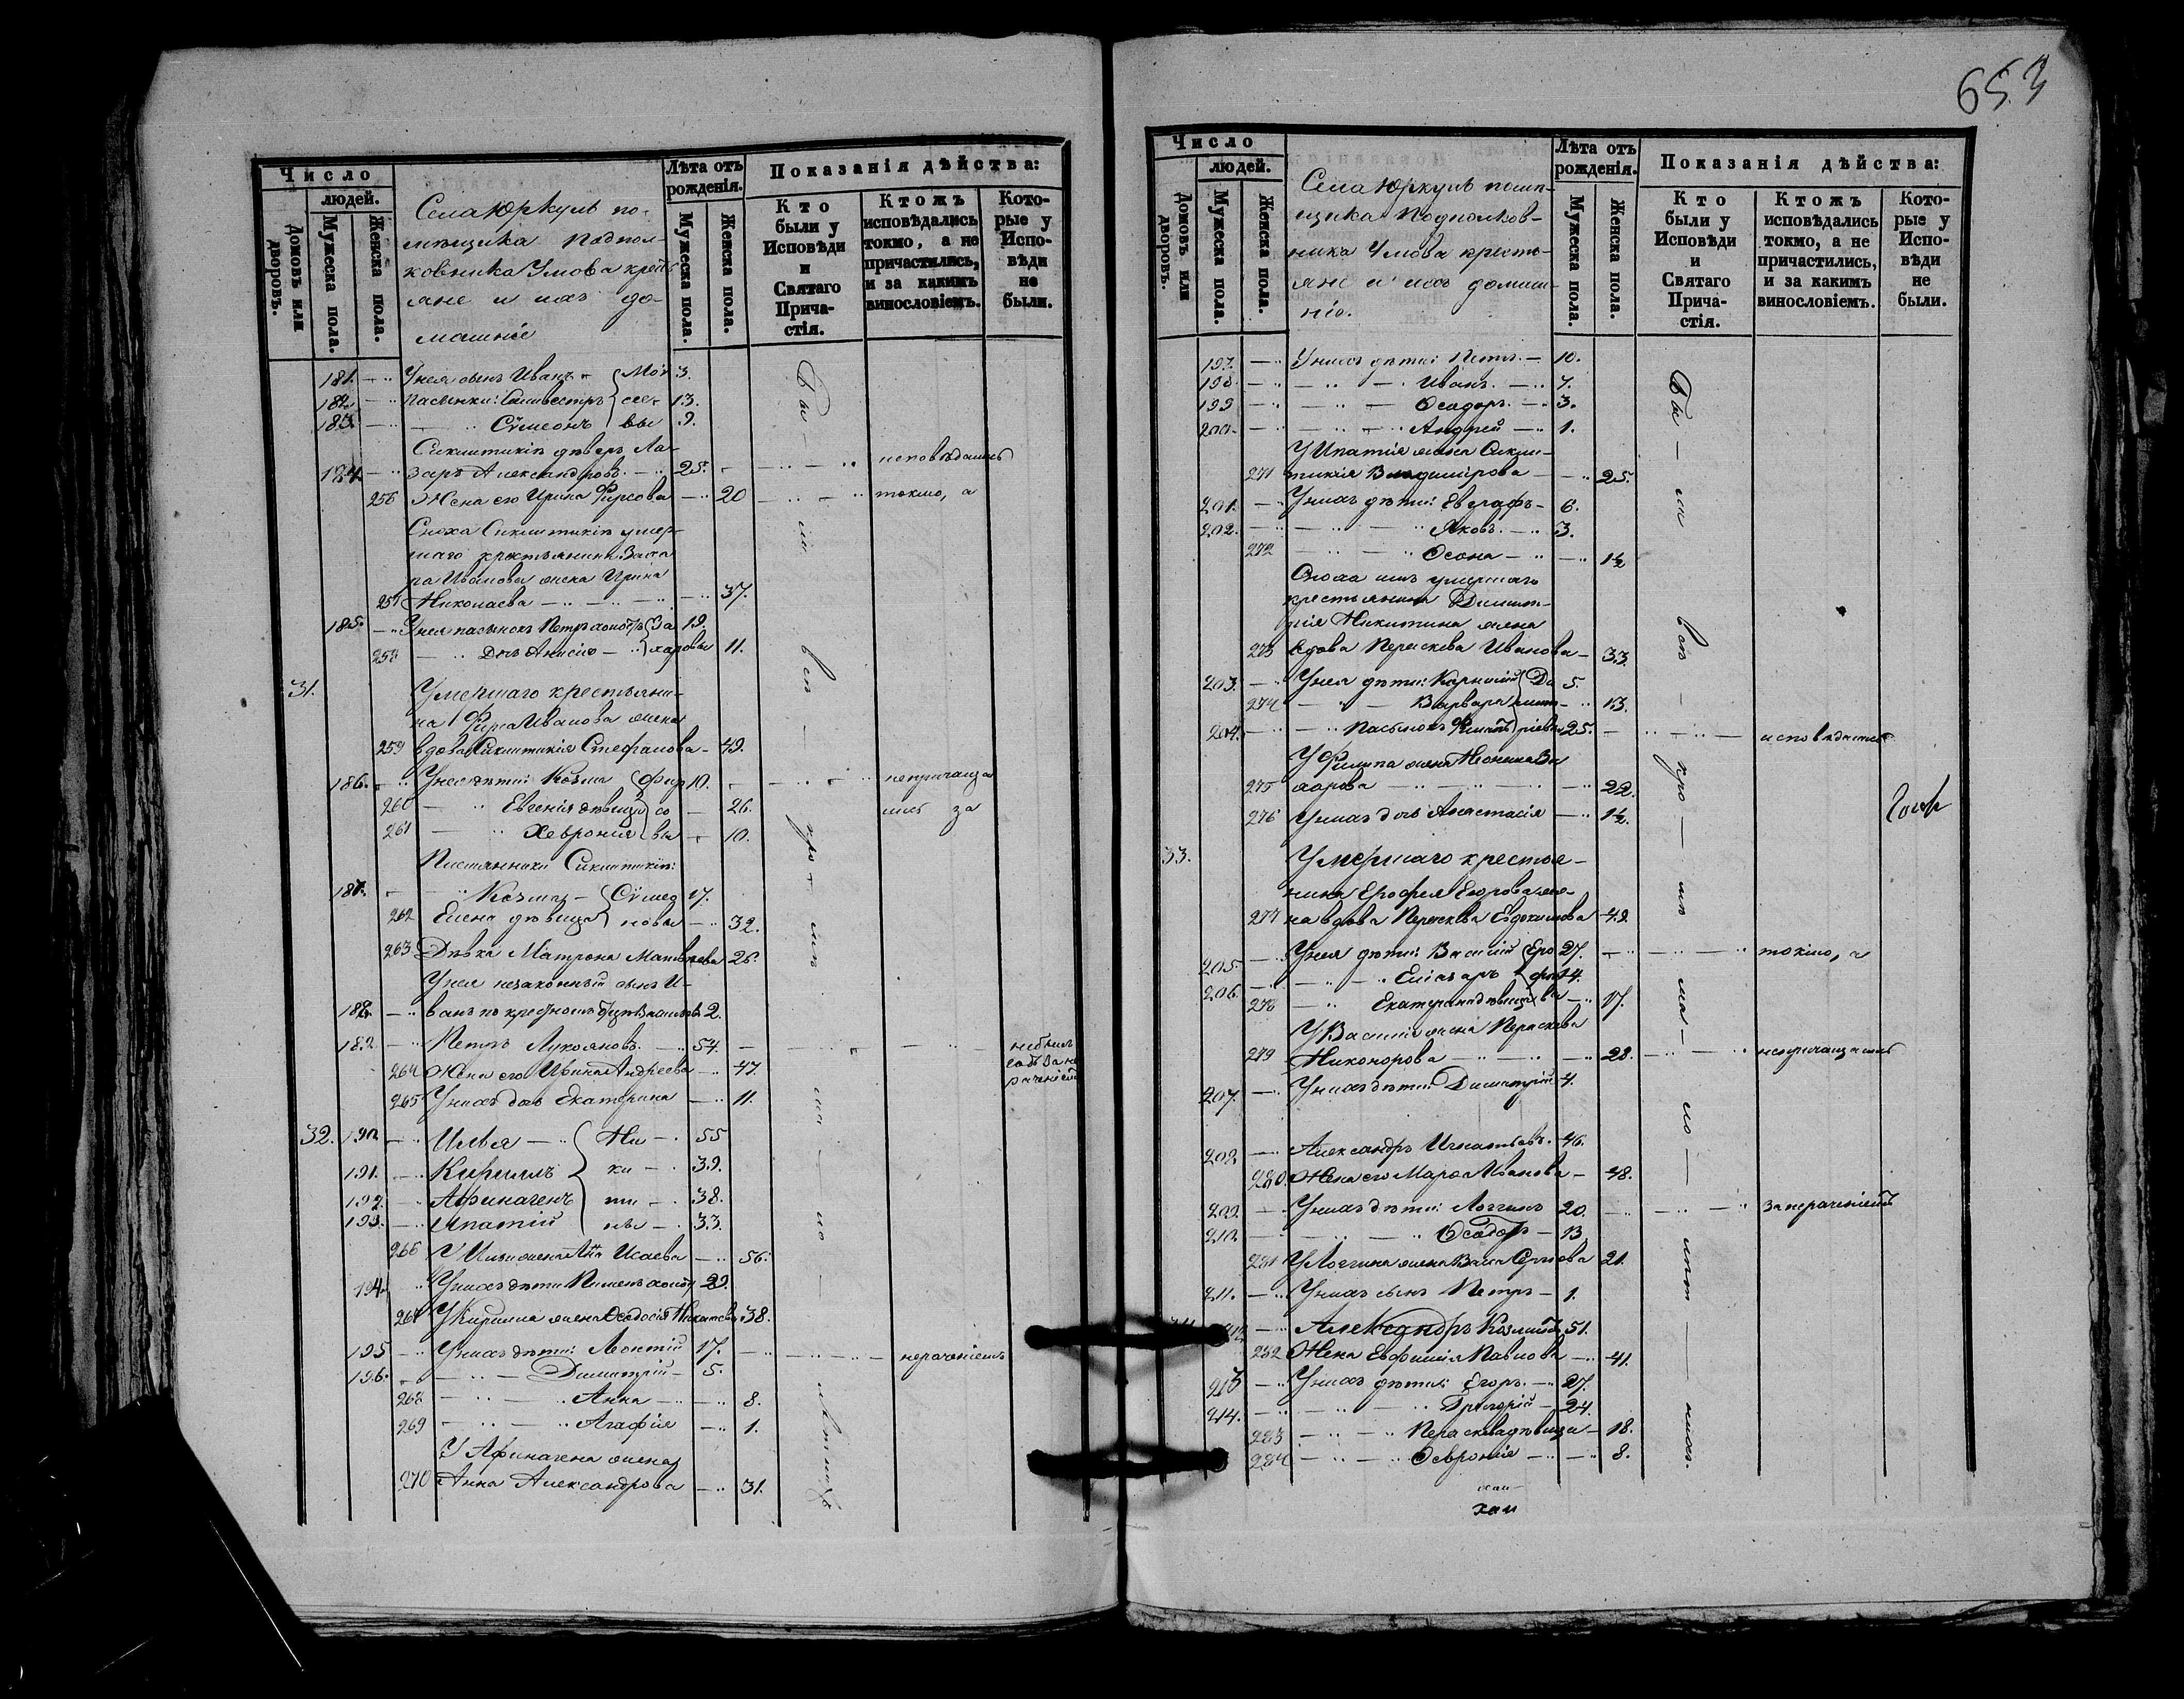 653
Число
людей.
Домовъ или дворовъ.
Мужеска пола.
Женска пола.
Села Юркуль по-
мѣщика Подпол-
ковника Умова кресть
яне и ихъ до-
машніе
Лѣта отъ рожденія.
Мужеска пола.
Женска пола.
Показанія дѣйства:
Кто были у Исповѣди и Святаго Прича-стія.
Ктожъ исповѣдались токмо, а не причастились, и за какимъ винословіемъ.
Кото-рые у Испо-вѣди не были.
181. У нея сынъ Иванъ 3.
182. Пасынки: Сильвестръ 13.
183. Сѵмеонъ 9.
деверь Ла-
184. зарь Александровъ 25. исповѣдались
256 Жена его Ирина Фирсова 20 токмо, а
Сноха умер-
шаго крестьянина Заха
ра Иванова жена Ирина
257 Николаева 37.
185. У нея пасынокъ Петръ холостъ За 19.
258 Дочь Анисія харовы 11.
31. Умершаго крестьяни-
на Фирса Иванова жена
259 вдова Стефанова 49.
186. У нея дѣти: Козма Фир 10. непричаща
260 Евгенія дѣвица со 26. лись за
261 Хеврония вы 10.
Племянники
187. Козма Сѵмео 17.
262 Елена дѣвица новы 32.
263 Дѣвка Матрона Матвѣева 26.
У нея незаконный сынъ И-
188. ванъ по крестномъ 2.
189. Петръ Лукояновъ 54. небылъ
264 Жена его Ирина Андреева 47.
265 У нихъ дочь Екатерина 11.
32. 190. Илья Ни 55
191. Кириллъ ки 39.
192. Афиногенъ ти 38.
193. Ипатій ны 33.
266 У Ильи жена Анна Исаева 56.
194. У нихъ дѣти Пименъ холостъ 29.
267 У Кирилла жена Ѳеодосія 38.
195 У нихъ дѣти: Леонтій 17. нераченіемъ
196. Димитрій 5.
268 Анна 8.
269 Агафія 1.
У Афиногена жена
270 Анна Александрова 31.
Бы ли всѣ кро мѣ
Число
людей.
Домовъ или дворовъ.
Мужеска пола.
Женска пола.
Села Юркуль помѣ-
щика Подполков-
ника Умова кресть-
яне и ихъ домаш-
ніе.
Лѣта отъ рожденія.
Мужеска пола.
Женска пола.
Показанія дѣйства:
Кто были у Исповѣди и Святаго Прича-стія.
Ктожъ исповѣдались токмо, а не причастились, и за какимъ винословіемъ.
Кото-рые у Испо-вѣди не были.
197. У нихъ дѣти: Петръ 10.
198. Иванъ 7.
199 Ѳеодоръ 3.
200. Андрей 1.
У Ипатія жена
271 Владимірова 25.
201. У нихъ дѣти: Евграфъ 6.
202. Яковъ 3.
272 1½
Сноха ихъ умершаго
крестьянина Димит-
рія Никитина жена
273 вдова Пераскева Иванова 33.
203. У нея дѣти: Ди 5.
274 Варвара мит 13.
204. Пасынокъ Филиппъ ріевы 25. исповѣдались
У Филиппа жена За
275 харова 22.
276 У нихъ дочь Анастасія 1½.
33. Умершаго крестья-
нина Ерофея Егорова же-
277 на вдова Пераскева Евдокимова 49.
205. У нея дѣти: Василій Еро 27. токмо, а
206. Елеазаръ фѣе 14.
278 Екатерина дѣвица вы 17.
У Василія жена Пераскева
279 Никонорова 28. непричащались
207. У нихъ дѣти: Димитрій 4.
208 Александръ Игнатьевъ 46.
280. Жена его Марѳа Иванова 48.
209. У нихъ дѣти: Логгинъ 20. за нераченіемъ
210. Ѳеодоръ 13
281 У Логгина жена Васса Сергѣева 21.
211. У нихъ сынъ Петръ 1.
212 Александръ Козминъ 51.
282 Жена Евфимія Павлова 41.
213 У нихъ дѣти: Егоръ 27.
214. Григорій 24.
283 Пераскева дѣвица 18.
284 Ѳевронія 8.
Бы ли всѣ кро мѣ ма ло лѣт нихъ.